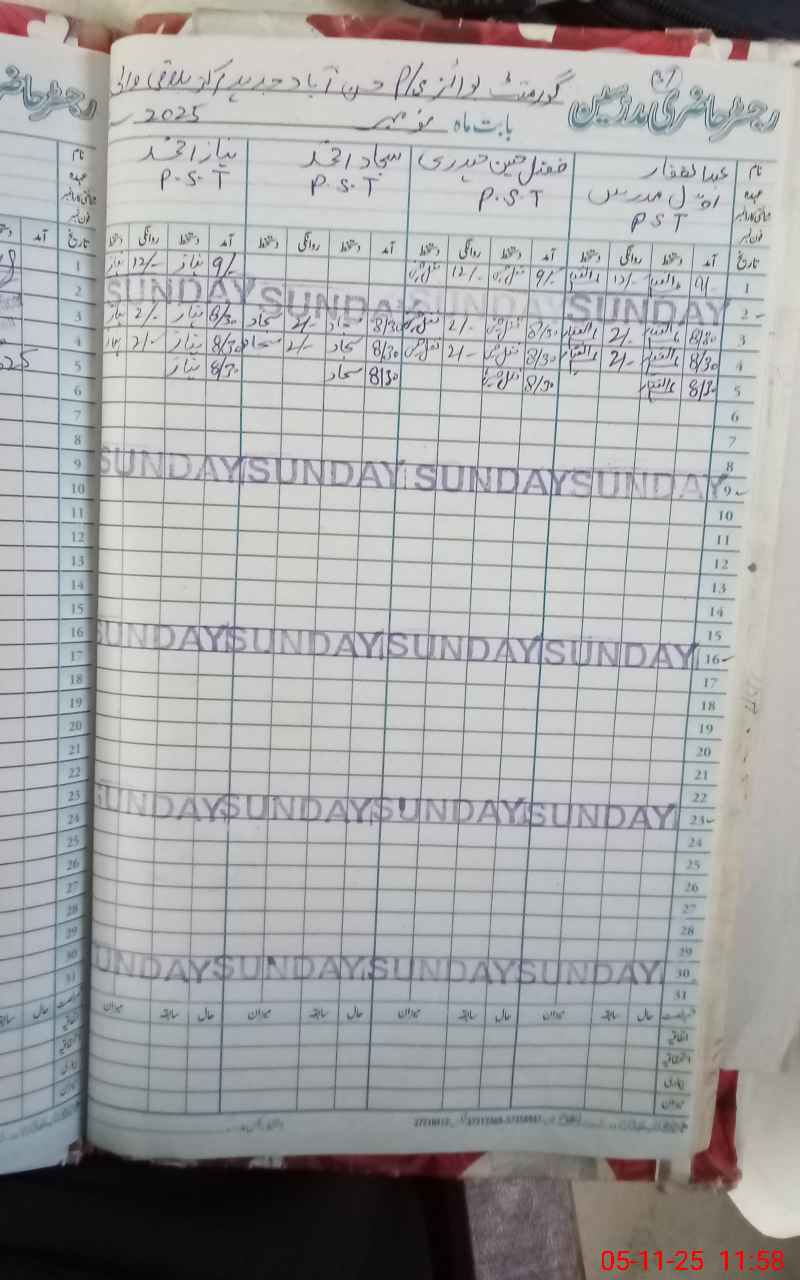 رجسٹر حاضری مدرسین
گورمنٹ بوائز پی/P حسن آباد جدید مرکز
بابت ماہ نومبر 2025
نام عبدالغفار فضل حسین حیدری سجاد احمد نیاز احمد
عہدہ اول مدرس PST P.S.T P.S.T P.S.T
تاریخ آمد دستخط روانگی دستخط آمد دستخط روانگی دستخط آمد دستخط روانگی دستخط آمد دستخط روانگی دستخط
1 9/- 12/- 9/- 12/- 9/- نیاز 12/- نیاز
2 SUNDAY SUNDAY SUNDAY SUNDAY
3 8/30 2/- 8/30 2/- 8/30 سجاد 2/- سجاد 8/30 نیاز 2/- نیاز
4 8/30 2/- 8/30 2/- 8/30 سجاد 2/- سجاد 8/30 نیاز 2/- نیاز
5 8/30 8/30 8/30 سجاد 8/30 نیاز
6
7
8
9 SUNDAY SUNDAY SUNDAY SUNDAY
10
11
12
13
14
15
16 SUNDAY SUNDAY SUNDAY SUNDAY
17
18
19
20
21
22
23 SUNDAY SUNDAY SUNDAY SUNDAY
24
25
26
27
28
29
30 SUNDAY SUNDAY SUNDAY SUNDAY
31
حال سابقہ میزان حال سابقہ میزان حال سابقہ میزان حال سابقہ میزان
اتفاقیہ
استحقاقیہ
بیماری
میزان
05-11-25 11:58